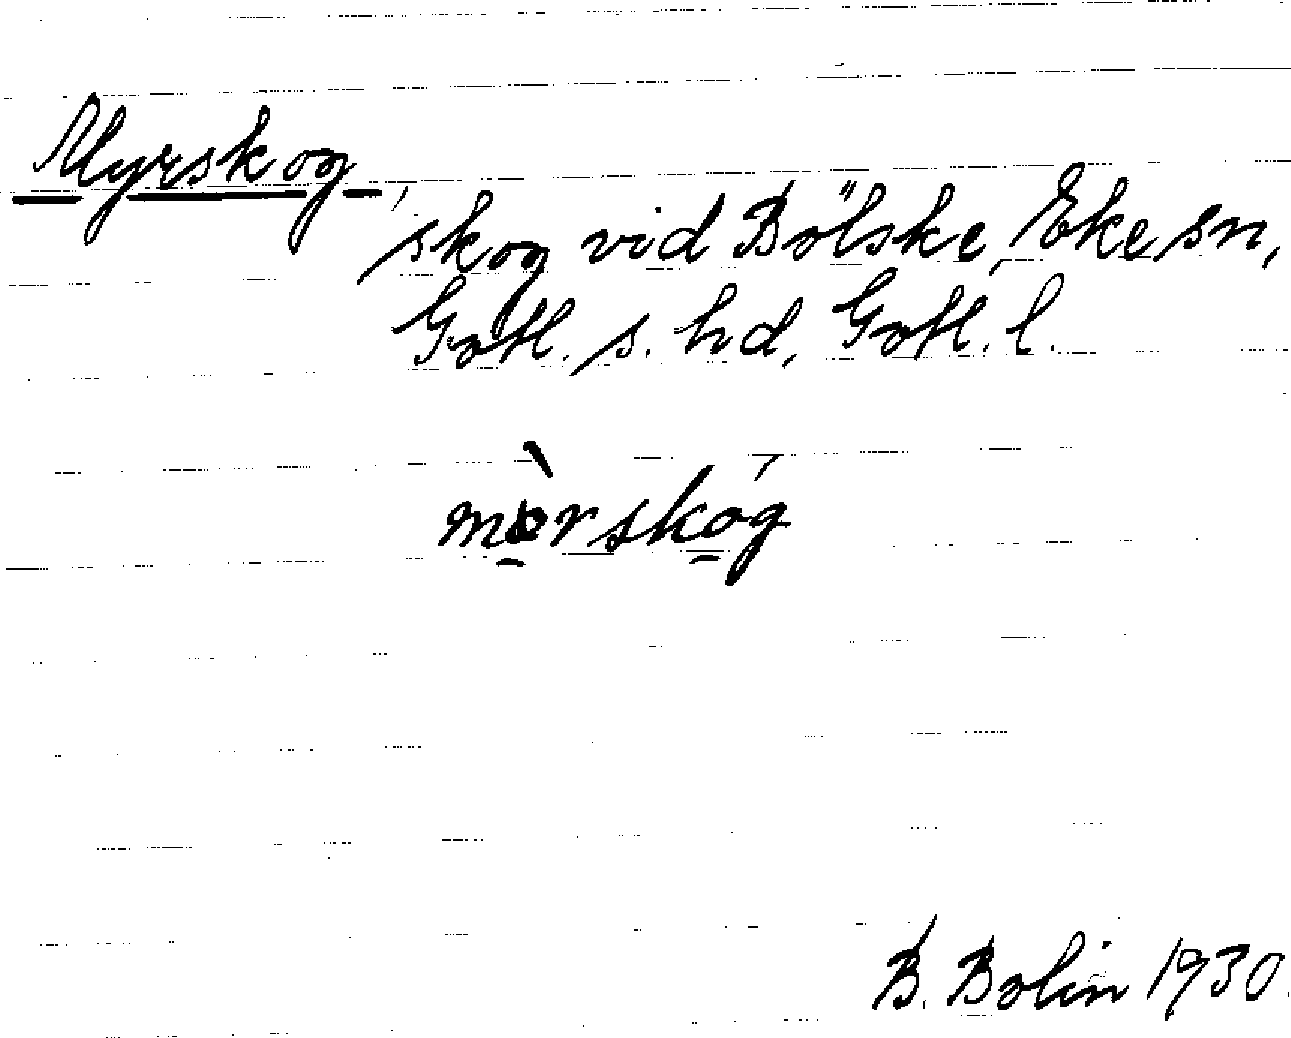 Myrskog,
skog vid Bölske, Eke sn,
Gotl. s. hd, Gotl. l.
mò̱rskó̱g
B. Bolin 1930.